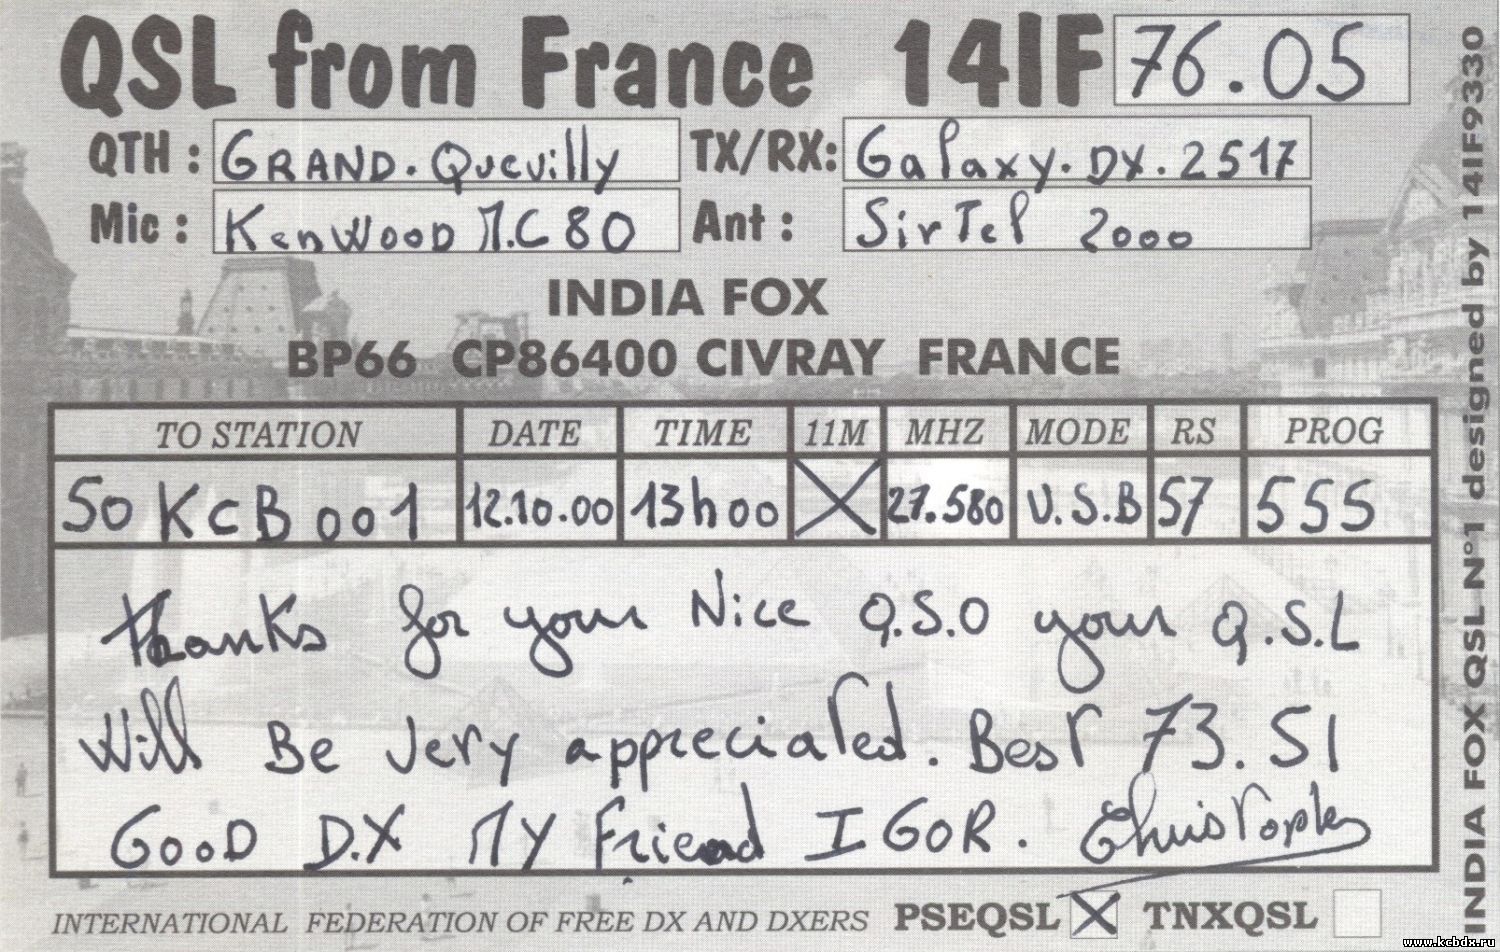 QSL from France 14IF 76.05
QTH : GRAND. Quevilly TX/RX: Galaxy. DX. 2517
Mic : KenWooD M.C 80 Ant : SirTel 2000
INDIA FOX
BP66 CP86400 CIVRAY FRANCE
TO STATION DATE TIME 11M MHZ MODE RS PROG
50 KCB 001 12.10.00 13h00 X 27.580 U.S.B 57 555
Thanks for your Nice Q.S.O your Q.S.L
Will Be Very appreciated. Best 73. 51
GooD D.X MY Friend IGOR. Christophe
INTERNATIONAL FEDERATION OF FREE DX AND DXERS PSEQSL X TNXQSL
INDIA FOX QSL N°1 designed by 14IF9330
www.kcbdx.ru